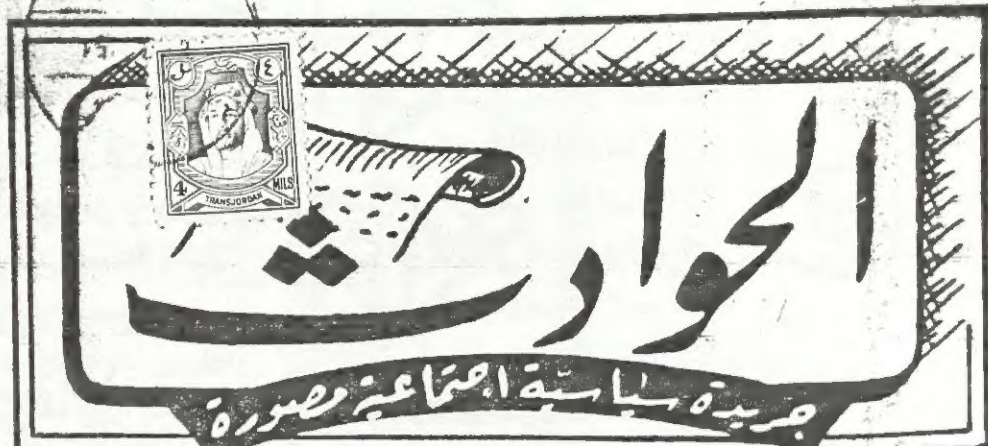 ٤
4
MILS
TRANSJORDAN
الحوادث
جريدة سياسية اجتماعية مصورة